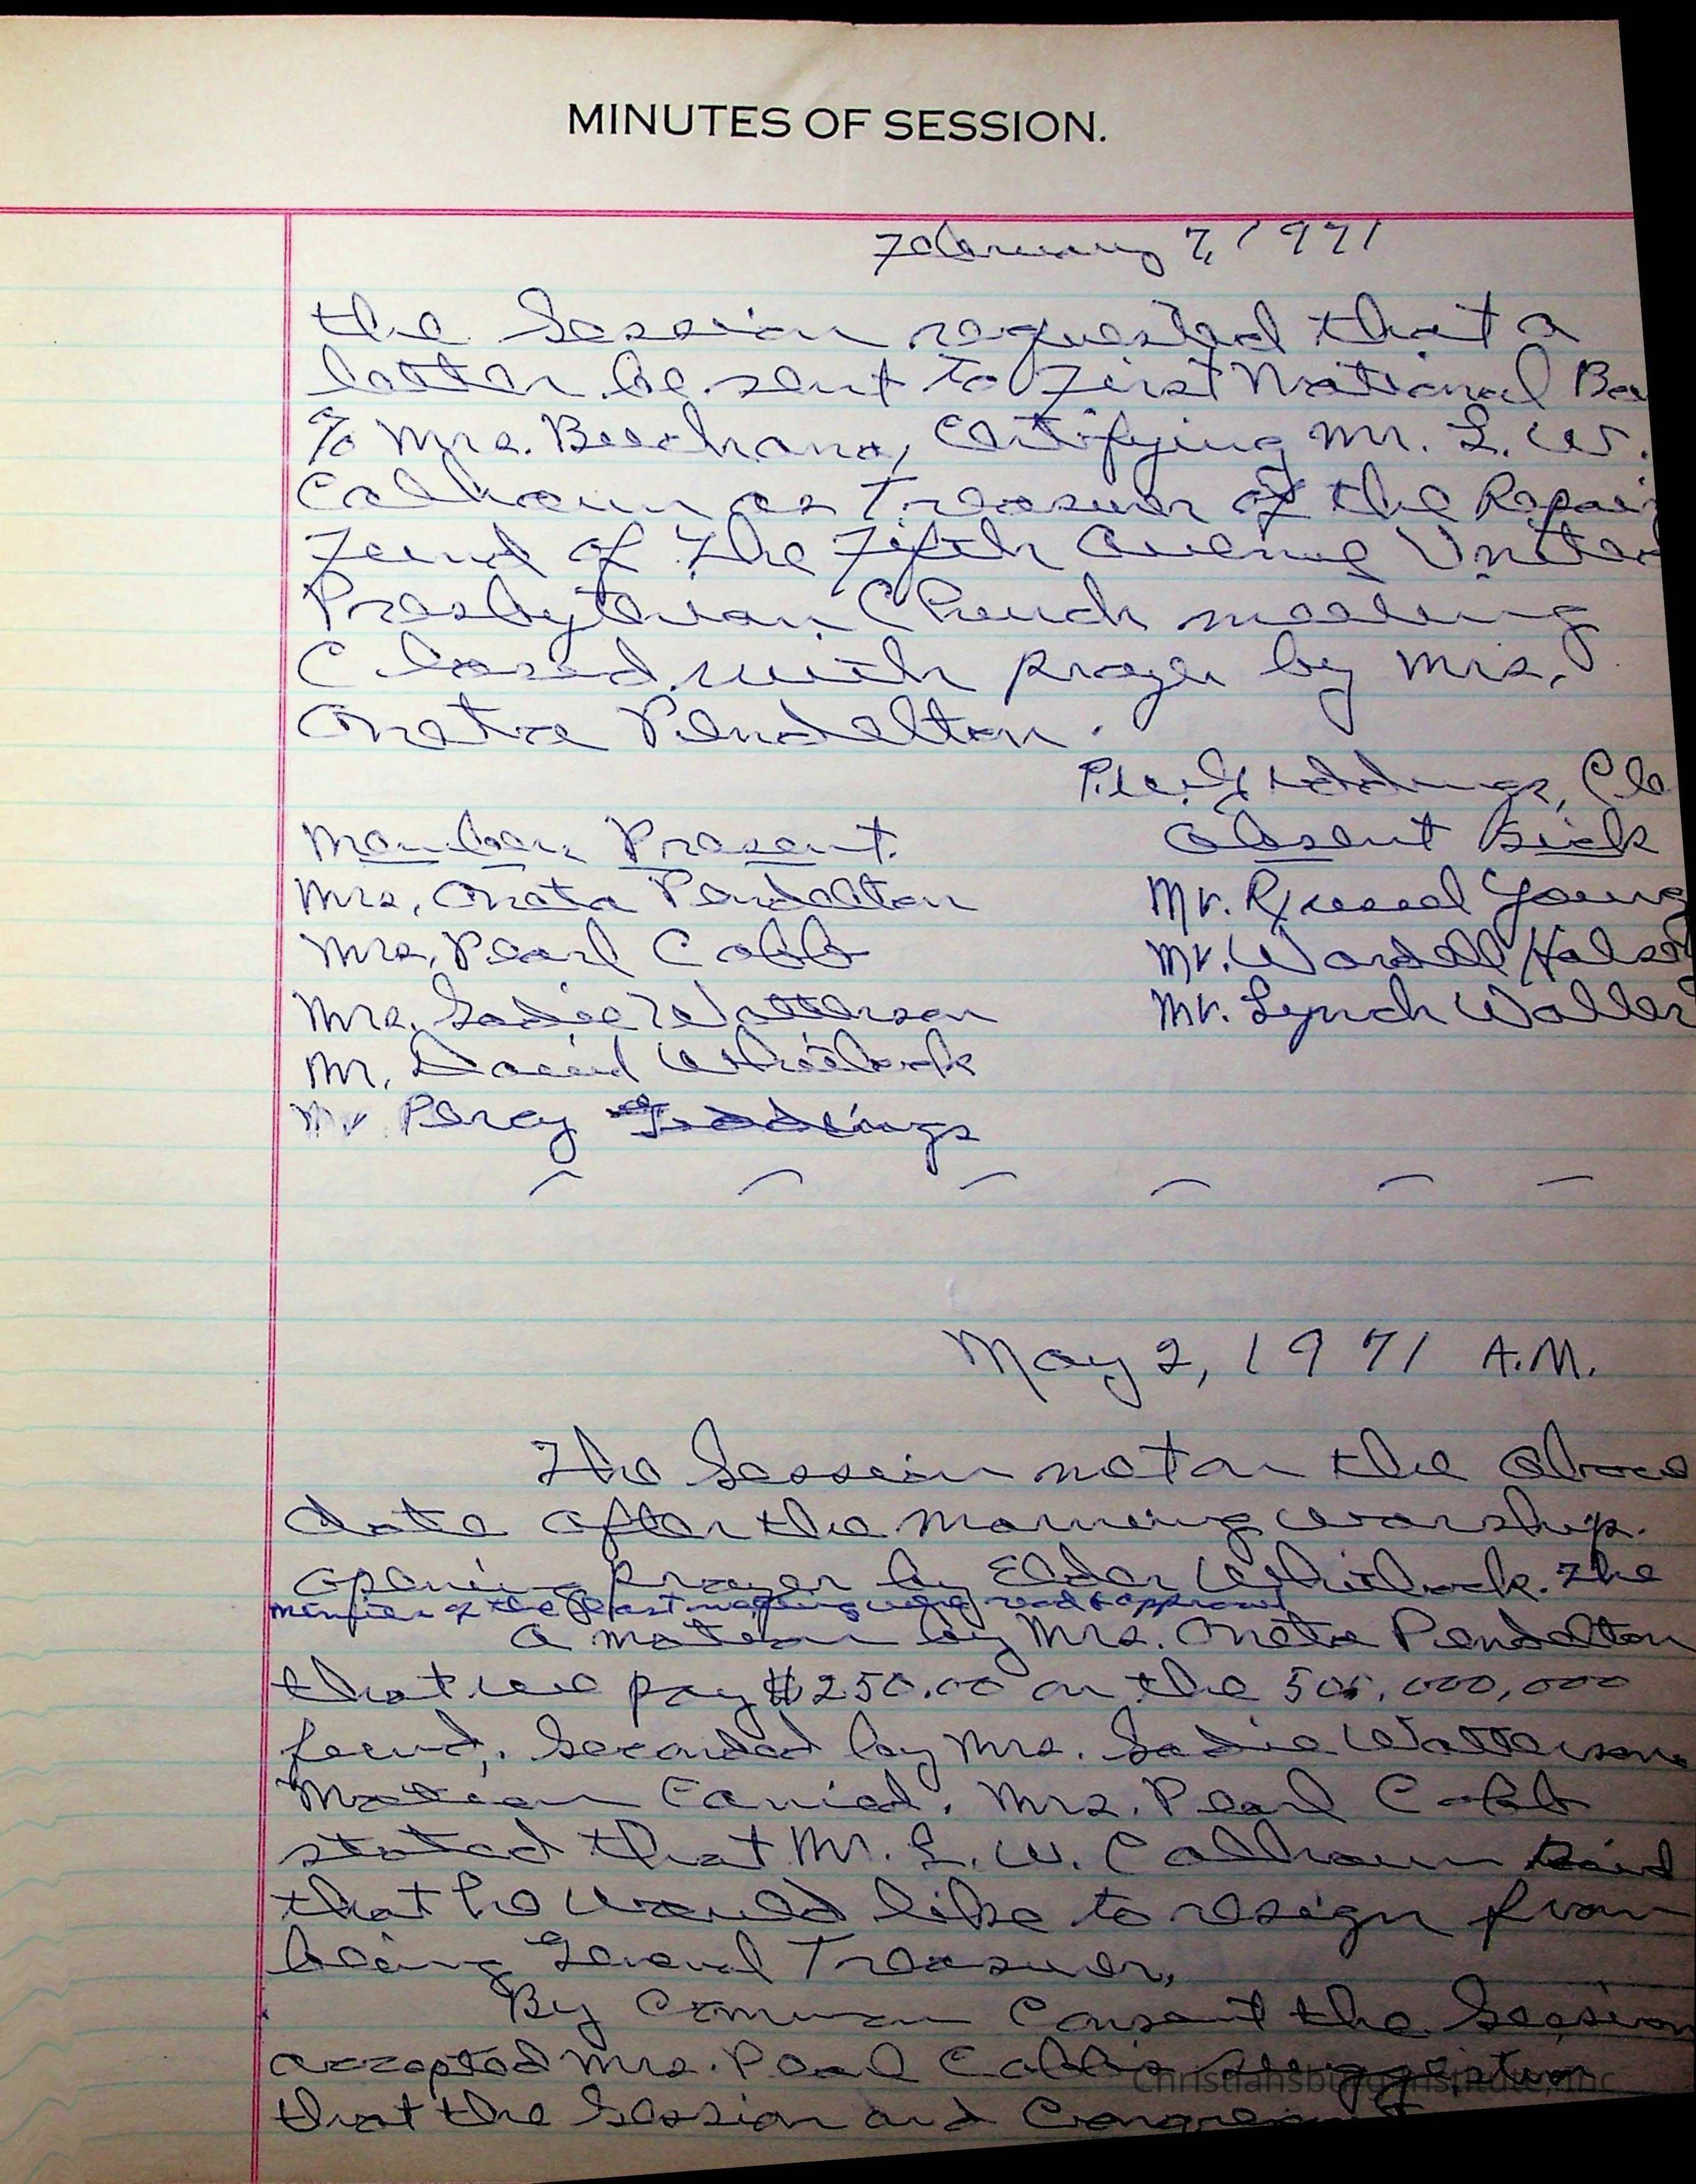 MINUTES OF SESSION.
February 7, 1971
the Session requested that a
letter be sent to First National Ba
% Mrs. Certifying Mr. L. W.
Calhoun as Treasurer of the Repair
Fund of the Fifth Avenue United
Presbyterian Church meeting
Closed with prayer by Mrs.
Oneta Pendelton.
Giddings, Cle
Members Present. Absent Sick
Mrs. Oneta Pendelton Mr. Russel Young
Mrs. Pearl Cobb Mr. Wardell
Mrs. Sadie Watterson Mr. Lynch Waller
Mr. David Whitlock
Mr Percy Giddings
May 2, 1971 A.M.
The Session met on the above
date after the morning worship.
Opening prayer by Elder Whitlock. The
minutes of the last meeting were read & approved
A motion by Mrs. Oneta Pendelton
that we pay $250.00 on the 000,000
fund. Seconded by Mrs. Sadie Watterson.
Motion Carried. Mrs. Pearl Cobb
stated that Mr. L. W. Calhoun said
that he would like to resign from
being General Treasurer.
By Common Consent the Session
accepted Mrs. Pearl Cobb's suggestion
that the Session and
Christiansburg Institute, Inc